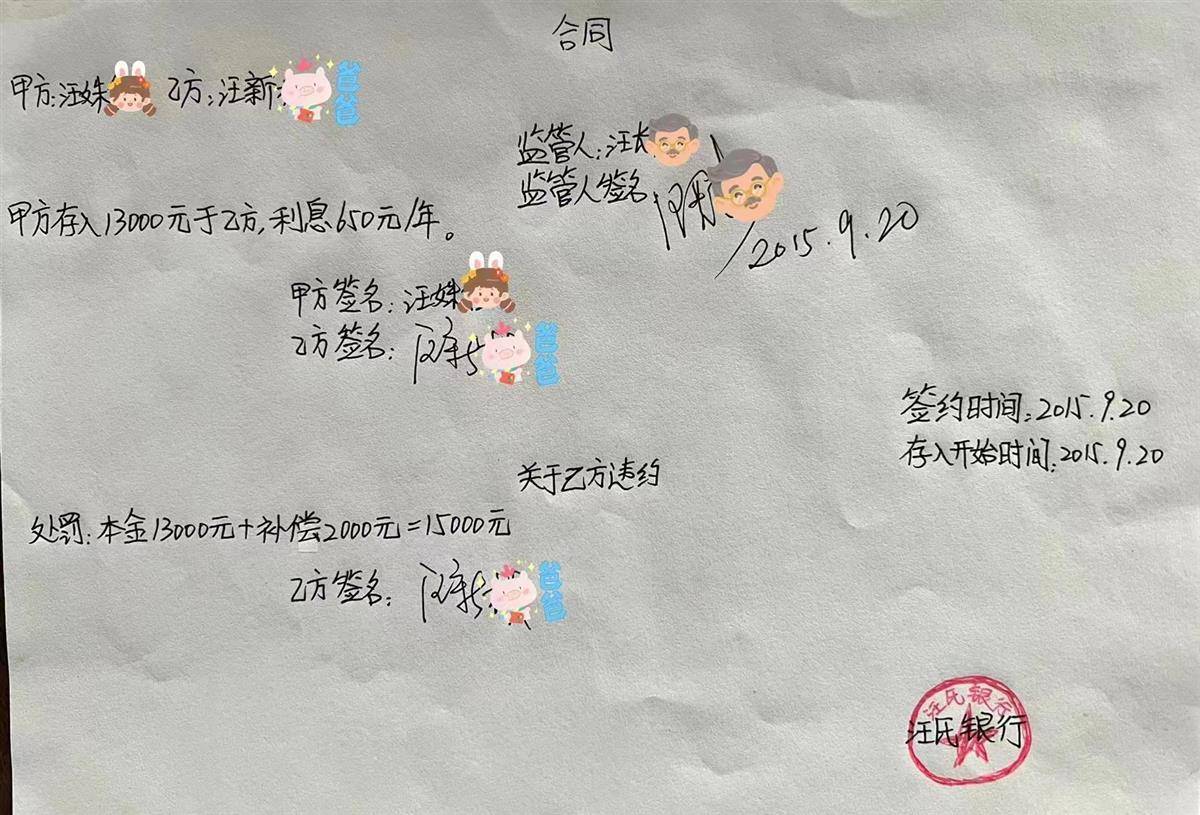 合同
甲方:汪姝
乙方:汪新
爸爸
监管人:汪长
监管人签名
2015.9.20
甲方存入13000元于乙方,利息650元/年。
甲方签名:汪姝
乙方签名:
爸爸
签约时间:2015.9.20
存入开始时间:2015.9.20
关于乙方违约
处罚:本金13000元+补偿2000元=15000元
乙方签名:
爸爸
汪氏银行
汪氏银行